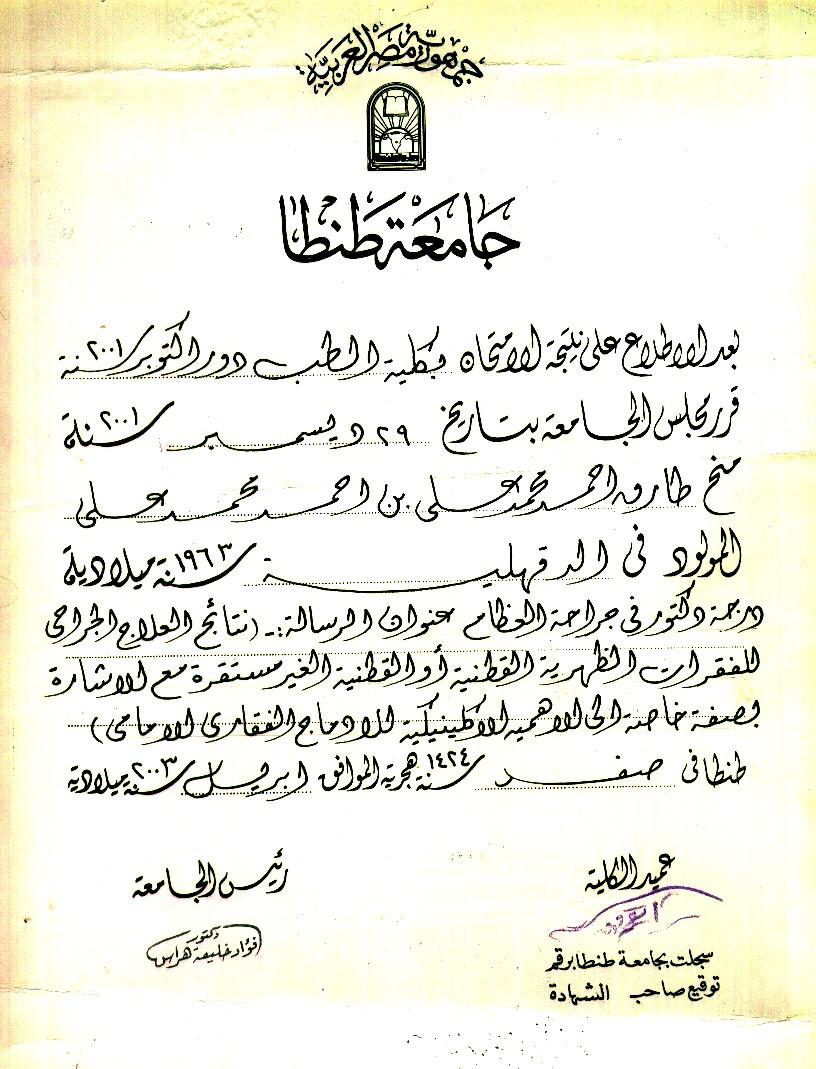 جمهورية مصر العربية
جامعة طنطا
بعد الاطلاع على نتيجة الامتحان بكلية الطب دور اكتوبر سنة ٢٠٠١
قرر مجلس الجامعة بتاريخ ٢٩ ديسمبر سنة ٢٠٠١
منح طارق احمد محمد على بن احمد محمد على
المولود فى الدقهلية سنة ١٩٦٣ ميلادية
درجة دكتور فى جراحة العظام عنوان الرسالة:- (نتائج العلاج الجراحى
للفقرات الظهرية القطنية أو القطنية الغير مستقرة مع الاشارة
بصفة خاصة الى الاهمية الاكلينيكية للادماج الفقارى الامامى)
طنطا فى صفر سنة ١٤٢٤ هجرية الموافق ابريل سنة ٢٠٠٣ ميلادية
عميد الكلية
رئيس الجامعة
دكتور
فؤاد خليفة هراس
سجلت بجامعة طنطا برقم
توقيع صاحب الشهادة